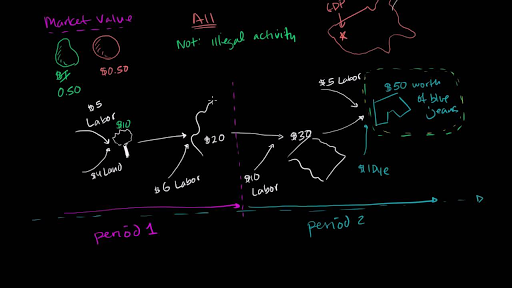 Market Value
All
GDP
Not: illegal activity
$1
0.50
$0.50
$5
Labor
$10
$4 Land
$6 Labor
$20
$10
Labor
$30
$5 Labor
$50 worth
of blue
jeans
$1 Dye
period 1
period 2